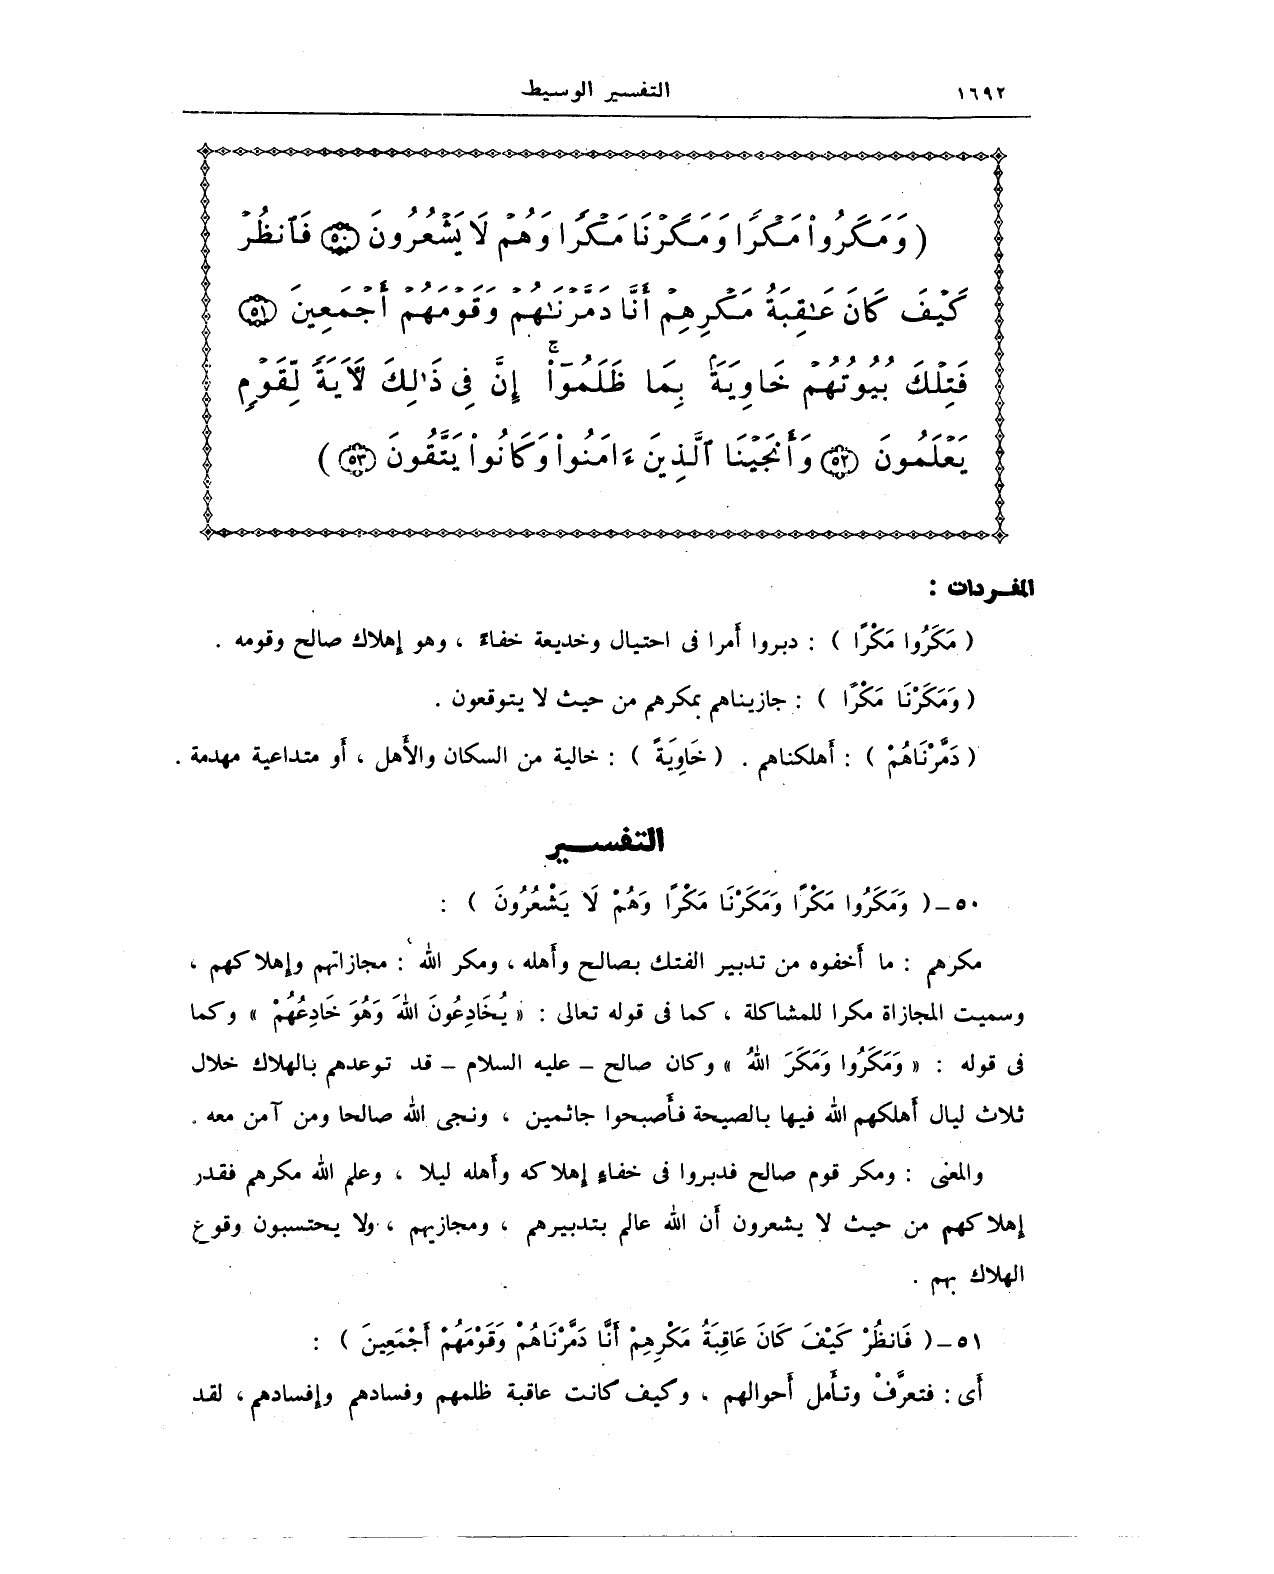 ١٦٩٢ التفسير الوسيط
( وَمَكَرُوا۟ مَكْرًا وَمَكَرْنَا مَكْرًا وَهُمْ لَا يَشْعُرُونَ ٥٠ فَٱنظُرْ
كَيْفَ كَانَ عَـٰقِبَةُ مَكْرِهِمْ أَنَّا دَمَّرْنَـٰهُمْ وَقَوْمَهُمْ أَجْمَعِينَ ٥١
فَتِلْكَ بُيُوتُهُمْ خَاوِيَةًۢ بِمَا ظَلَمُوٓا۟ ۚ إِنَّ فِى ذَٰلِكَ لَـَٔايَةً لِّقَوْمٍ
يَعْلَمُونَ ٥٢ وَأَنجَيْنَا ٱلَّذِينَ ءَامَنُوا۟ وَكَانُوا۟ يَتَّقُونَ ٥٣ )
المفـردات :
( مَكَرُوا مَكْرًا ) : دبروا أَمرا فى احتيال وخديعة خفاءً ، وهو إهلاك صالح وقومه .
( وَمَكَرْنَا مَكْرًا ) : جازيناهم بمكرهم من حيث لا يتوقعون .
( دَمَّرْنَاهُمْ ) : أَهلكناهم . ( خَاوِيَةً ) : خالية من السكان والأَهل ، أَو متداعية مهدمة .
التفســـير
٥٠ – ( وَمَكَرُوا مَكْرًا وَمَكَرْنَا مَكْرًا وَهُمْ لَا يَشْعُرُونَ ) :
مكرهم : ما أَخفوه من تدبير الفتك بصالح وأَهله ، ومكر الله : مجازاتهم وإهلاكهم ،
وسميت المجازاة مكرا للمشاكلة ، كما فى قوله تعالى : « يُخَادِعُونَ اللهَ وَهُوَ خَادِعُهُمْ » وكما
فى قوله : « وَمَكَرُوا وَمَكَرَ اللهُ » وكان صالح – عليه السلام – قد توعدهم بالهلاك خلال
ثلاث ليال أَهلكهم الله فيها بالصيحة فأَصبحوا جاثمين ، ونجى الله صالحا ومن آمن معه .
والمعنى : ومكر قوم صالح فدبروا فى خفاءٍ إهلاكه وأَهله ليلا ، وعلم الله مكرهم فقدر
إهلاكهم من حيث لا يشعرون أَن الله عالم بتدبيرهم ، ومجازيهم ، ولا يحتسبون وقوع
الهلاك بهم .
٥١ – ( فَانظُرْ كَيْفَ كَانَ عَاقِبَةُ مَكْرِهِمْ أَنَّا دَمَّرْنَاهُمْ وَقَوْمَهُمْ أَجْمَعِينَ ) :
أَى : فتعرَّفْ وتأَمل أَحوالهم ، وكيف كانت عاقبة ظلمهم وفسادهم وإفسادهم ، لقد